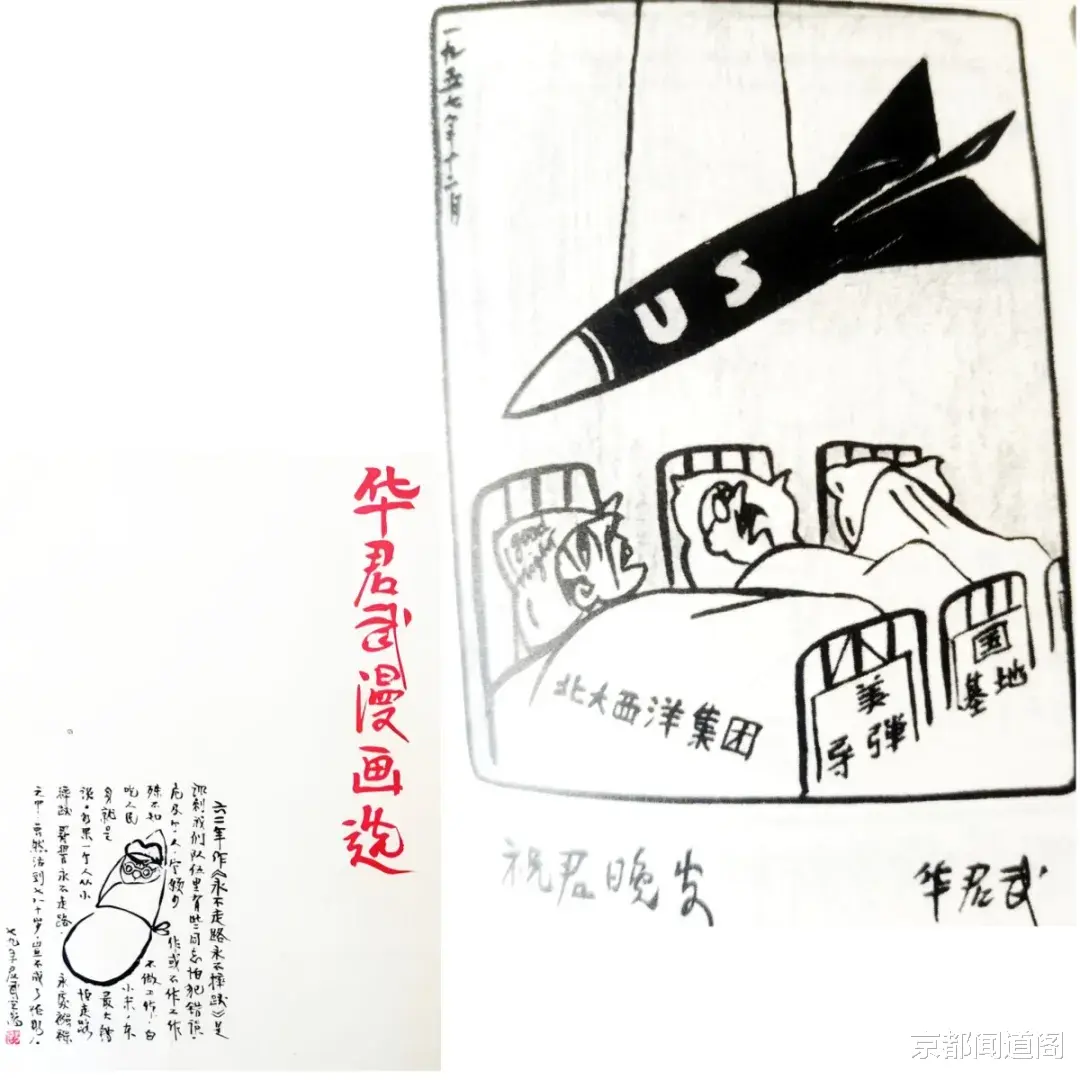 华君武漫画选
六二年作《永不走路永不摔跤》是
讽刺我们队伍里有些同志怕犯错误,
危及个人,宁愿少作或不作工作
殊不知不做工作,白
吃人民小米,本
身就是最大错
误。如果一个人从小怕走路
摔跤,发誓永不走路,永处襁褓
之中,虽然活到七八十岁,岂不成了怪物。
七九年君武
一九五七年十二月
US
good
night
北大西洋集团
美
导弹
国
基地
祝君晚安
华君武
京都闻道阁